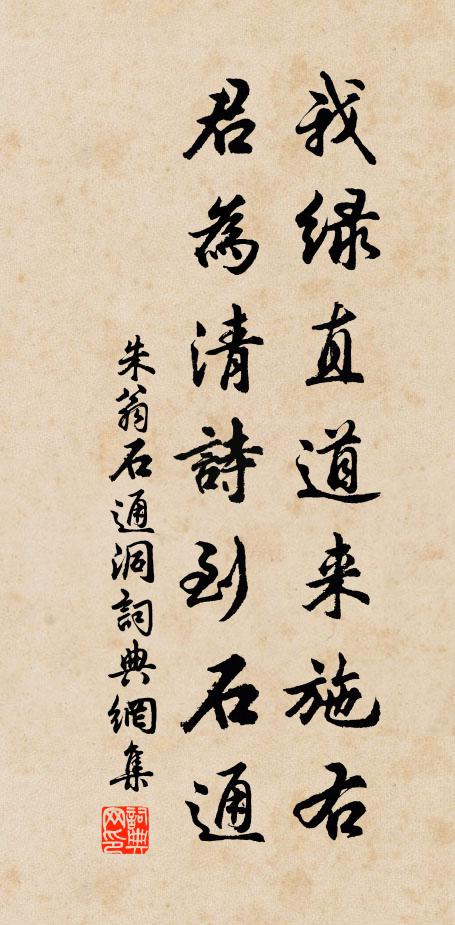 我緣直道来施右
君為清詩到石通
朱翁石通洞詞典網集
詞典
网印